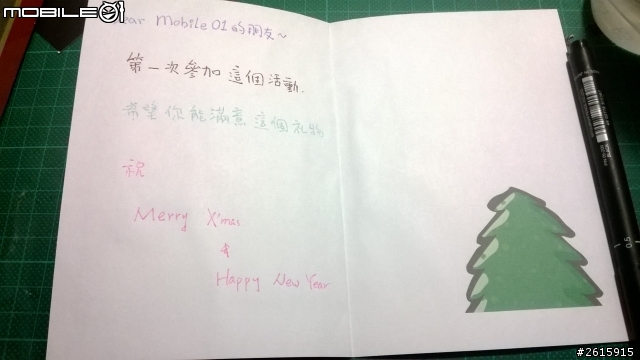 MOBILE01
Dear Mobile 01的朋友~
第一次參加這個活動.
希望你能滿意這個礼物
祝
Merry X'mas
&
Happy New Year
0.5
#2615915